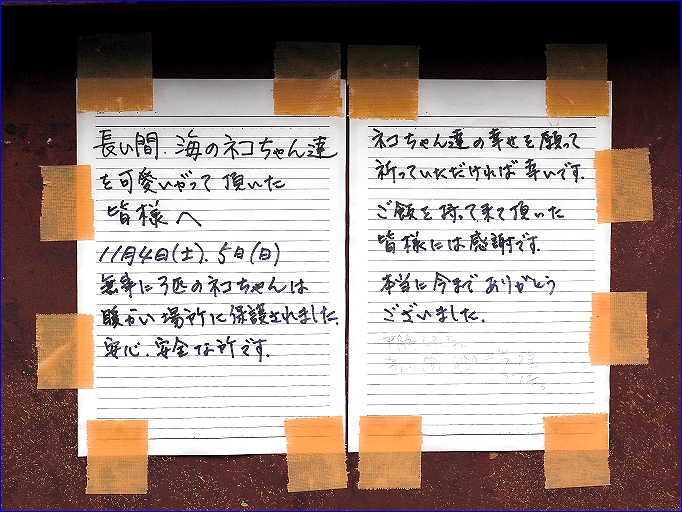 長い間、海のネコちゃん達
を可愛いがって頂いた
皆様へ
11月4日(土)、5日(日)
無事に3匹のネコちゃんは
暖かい場所に保護されました。
安心、安全な所です。
ネコちゃん達の幸せを願って
祈っていただければ幸いです。
ご飯を持って来て頂いた
皆様には感謝です。
本当に今までありがとう
ございました。